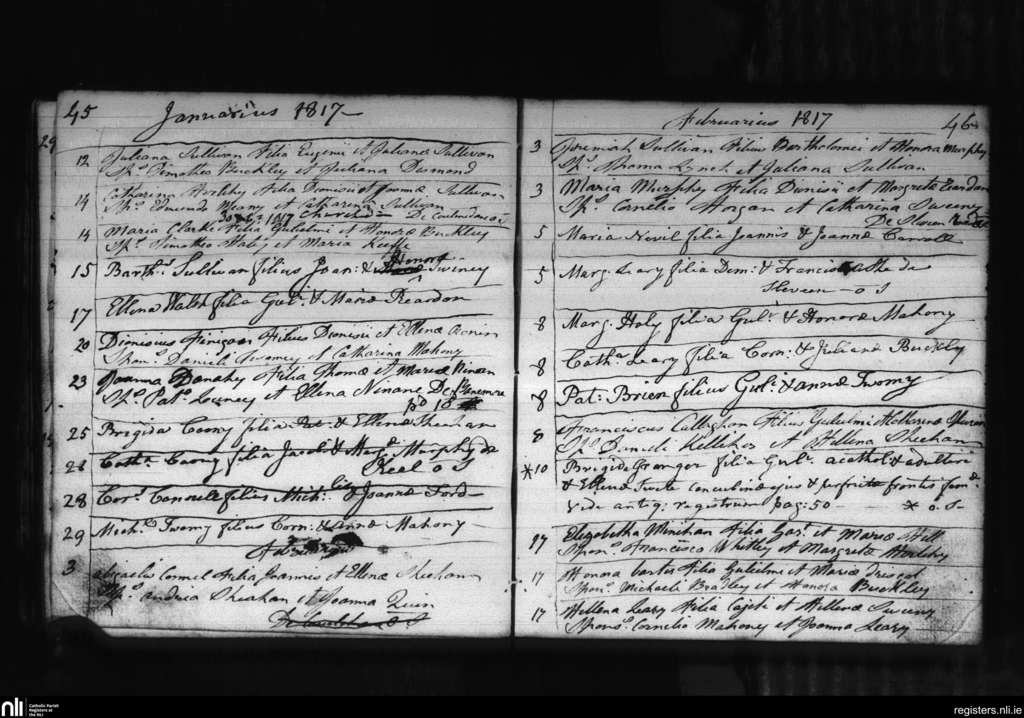 45 Januarius 1817
29
12 Juliana Sullivan Filia Eugenii et Juliana Sullivan
Sps. Timotheo Buckley et Juliana Desmond
14 Catharina Herlihy Filia Dionisii et Joannæ Sullivan
Sps. Edmundo Meany et Catharina Sullivan
1817 Churched De
14 Maria Clarke Filia Gulielmi et Honoræ Buckley
Sps. Timotheo Haly et Maria Keeffe
Honoræ
15 Barths. Sullivan filius Joan: & Swiney
17 Ellena Walsh filia Gul: & Mariæ Reardon
20 Dionisius Finigan Filius Dionisii et Ellenæ Cronin
Spon: Daniele Twomey et Catharina Mahony
23 Joanna Danahy Filia Thomæ et Mariæ Ninan
Sps. Pat: Downey et Ellena Ninane De
pd 10
25 Brigida Coomy filia Pat: & Ellenæ Sheehan
28 Cath: Casey filia Jacob: & Marg: Murphy de
Keel o S
28 Cors. Connell filius Mich: & Joannæ Ford
29 Michs. Twomy filius Corn: & Annæ Mahony
Februarius
3 Connel Filia Joannis et Ellenæ Sheehan
Sps. Andrea Sheehan et Joanna Quin
Februarius 1817 46
3 Jeremiah Sullivan Filius Bartholomei et Honora Murphy
Sps. Thoma Lynch et Juliana Sullivan
3 Maria Murphy Filia Dionisii et Margreta Reardan
Sps. Cornelio Horgan et Catharina Sweeny
De
5 Maria Nevil filia Joannis & Joannæ Carroll
5 Marg: Leary filia Dem: & Francisca Shea de
Sleveen o S
8 Marg: Haly filia Gul: & Honoræ Mahony
8 Cath: Leary filia Corn: & Julianæ Buckly
8 Pat: Brien filius Gul: & Annæ Twomy
8 Franciscus Callaghan Filius Gulielmi
Sps. Daniele Kelliher et Hellena Sheehan
*10 Brigida Granger filia Gul: acathol: & adulteri
& Ellenæ Tuete concubinæ ejus & perfrictæ frontis fem:
Vide antiq: registrum pag: 50 * o S
17 Elizabetha Minihan Filia Gas: et Mariæ Hill
Spon: Francisco Whitley et Margreta Herlihy
17 Honora Carter Filia Gulielmi et Mariæ Driscol
Spon: Michaele Bradley et Honora Buckley
17 Hellena Leary Filia et Hellenæ Sweeny
Spons: Cornelio Mahoney et Joanna Leary
nli Catholic Parish
Registers at
the NLI
registers.nli.ie